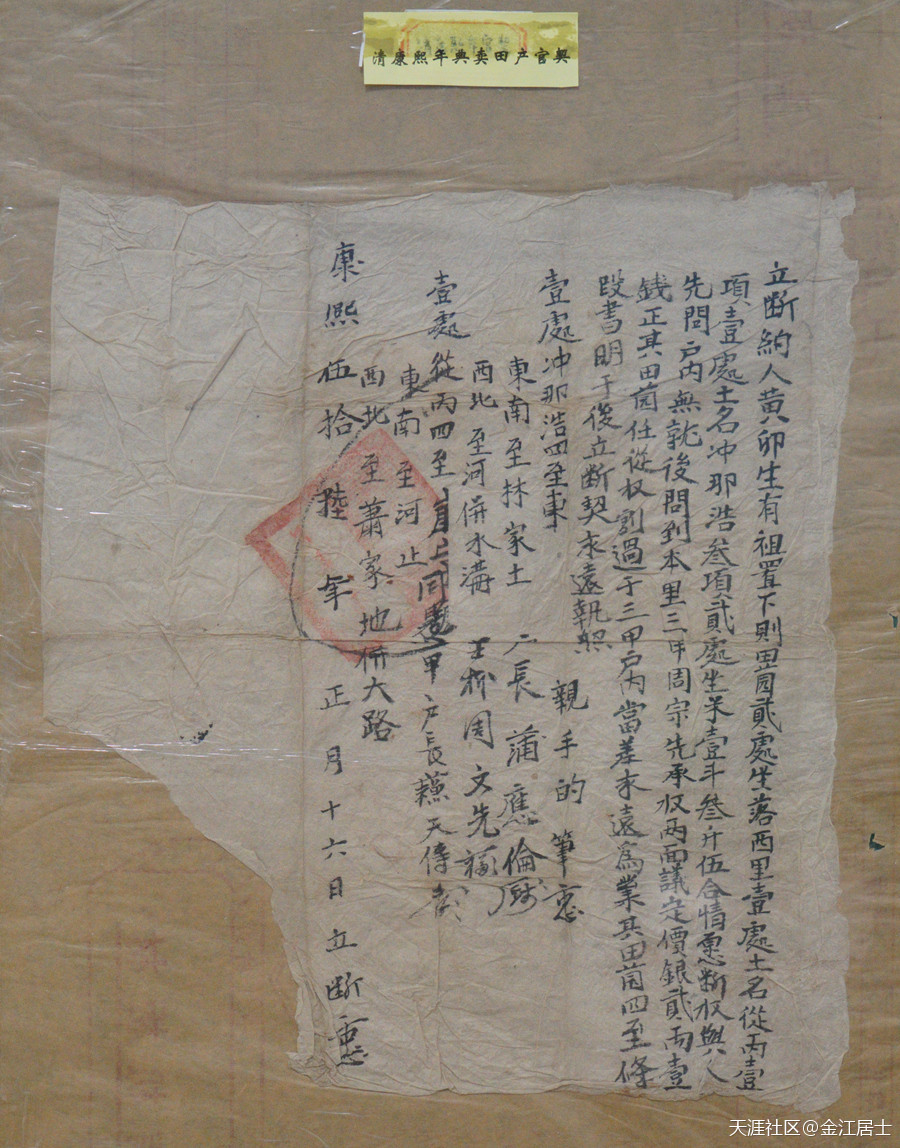 清康熙年典卖田产官契
立断約人黄卯生有祖置下則田園貳處坐落西里壹處土名從丙壹
項壹處土名冲那浩叁項貳處坐米壹斗叁升伍合情愿断权與人
先問户内無就後問到本里三甲周宗先承权两面議定價銀貳两壹
銭正其田茵任從权割過于三甲户内當差永遠為業其田茵四至條
段書明于後立断契永遠執照
親手的筆
壹處冲那浩四至東
東南至林家土
西北至河併水溝
長蒲應倫
周文先
壹處從丙四至
東南至河止
西北至蕭家地併大路
甲户長 天傳
康熙伍拾陸年正月十六日立断
天涯社区@金江居士